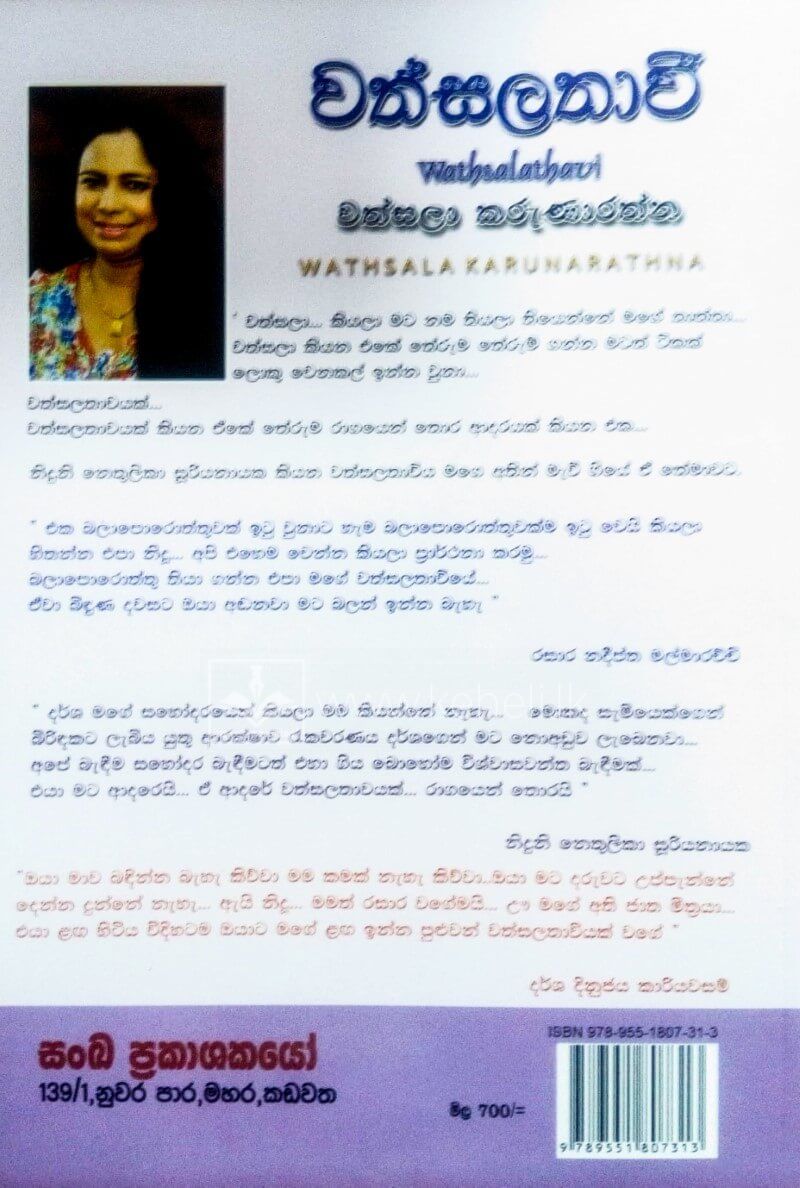 වත්සලතාවී
Wathsalathavi
වත්සලා කරුණාරත්න
WATHSALA KARUNARATHNA
" වත්සලා... කියලා මට නම තියලා තියෙන්නේ මගේ තාත්තා...
වත්සලා කියන එකේ තේරුම තේරුම් ගන්න මටත් ටිකක්
ලොකු වෙනකල් ඉන්න වුනා...
වත්සලතාවයක්...
වත්සලතාවයක් කියන ඒකේ තේරුම රාගයෙන් තොර ආදරයක් කියන එක...
නිදුනි නෙතුලිකා සූරියනායක කියන වත්සලතාවිය මගෙ අතින් මැවී ගියේ ඒ තේමාවට.
" එක බලාපොරොත්තුවක් ඉටු වුනාට හැම බලාපොරොත්තුවක්ම ඉටු වෙයි කියලා
හිතන්න එපා නිදූ... අපි එහෙම වෙන්න කියලා ප්‍රාර්ථනා කරමු...
බලාපොරොත්තු තියා ගන්න එපා මගේ වත්සලතාවියේ...
ඒවා බිඳුණ දවසට ඔයා අඬනවා මට බලන් ඉන්න බැහැ "
රසාර නදීප්ත මල්මාරච්චි
www.keheli.lk
" දර්ශ මගේ සහෝදරයෙක් කියලා මම කියන්නේ නැහැ... මොකද සැමියෙක්ගෙන්
බිරිඳකට ලැබිය යුතු ආරක්ෂාව රැකවරණය දර්ශගෙන් මට නොඅඩුව ලැබෙනවා...
අපේ බැඳීම සහෝදර බැඳීමටත් එහා ගිය බොහෝම විශ්වාසවන්ත බැඳීමක්...
එයා මට ආදරෙයි... ඒ ආදරේ වත්සලතාවයක්... රාගයෙන් තොරයි "
නිදුනි නෙතුලිකා සූරියනායක
"ඔයා මාව බඳින්න බැහැ කිව්වා මම කමක් නැහැ කිව්වා..ඔයා මට දරුවට උප්පැන්නේ
දෙන්න දුන්නේ නැහැ... ඇයි නිදූ... මමත් රසාර වගේමයි... ඌ මගේ අති ජාත මිත්‍රයා...
එයා ළඟ හිටිය විදිහටම ඔයාට මගේ ළඟ ඉන්න පුළුවන් වත්සලතාවියක් වගේ "
දර්ශ දිනුජය කාරියවසම්
සංඛ ප්‍රකාශකයෝ
139/1,නුවර පාර,මහර,කඩවත
මිල 700/=
ISBN 978-955-1807-31-3
9 789551 807313